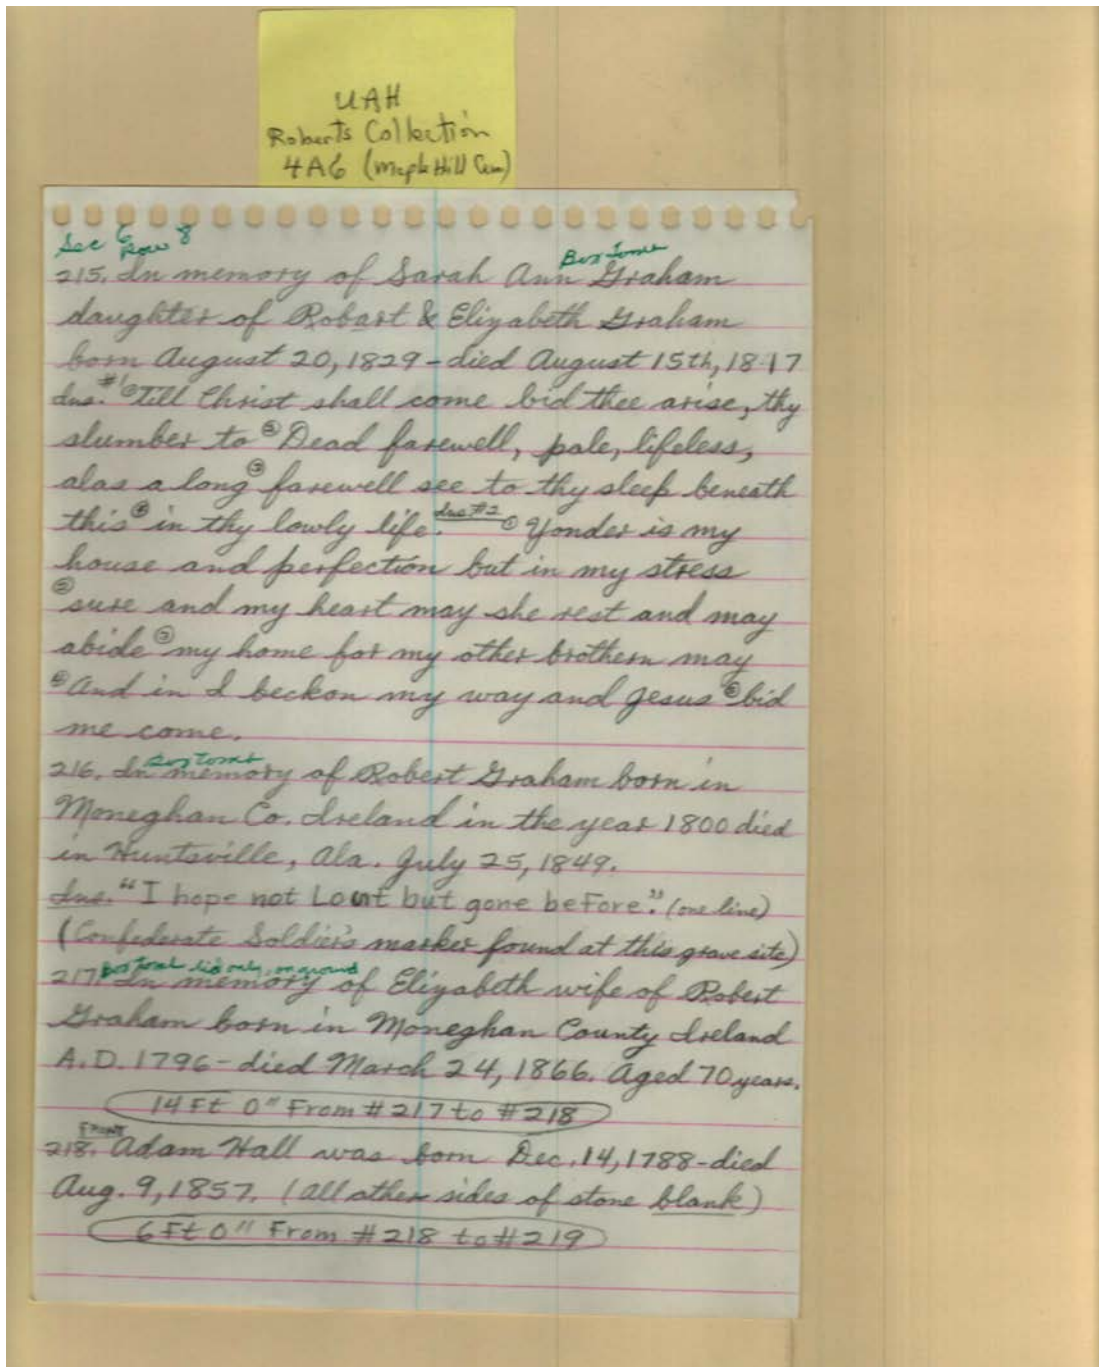 UAH
Roberts Collection
4A6 (Maple Hill Cem)
Sec 6 Row 8
Box Tomb
215. In memory of Sarah Ann Graham
daughter of Robart & Elizabeth Graham
born August 20, 1829 - died August 15th, 1817
Ins. #1 ① Till Christ shall come bid thee arise, thy
slumber to ② Dead farewell, pale, lifeless,
alas a long ③ farewell see to thy sleep beneath
this ④ in thy lowly life. Ins #2 ① Yonder is my
house and perfection but in my stress
② sure and my heart may she rest and may
abide ③ my home for my other brothern may
④ And in I beckon my way and Jesus ⑤ bid
me come.
Box Tomb
216. In memory of Robert Graham born in
Moneghan Co. Ireland in the year 1800 died
in Huntsville, Ala. July 25, 1849.
Ins. "I hope not Lont but gone beFore." (one line)
(Confederate Soldier's marker found at this grave site)
Box Tomb lid only, on ground
217. In memory of Elizabeth wife of Robert
Graham born in Moneghan County Ireland
A.D. 1796 - died March 24, 1866. Aged 70 years.
14 Ft 0" From #217 to #218
FRONT
218. Adam Hall was born Dec. 14, 1788 - died
Aug. 9, 1857. (all other sides of stone blank)
6 Ft 0" From #218 to #219